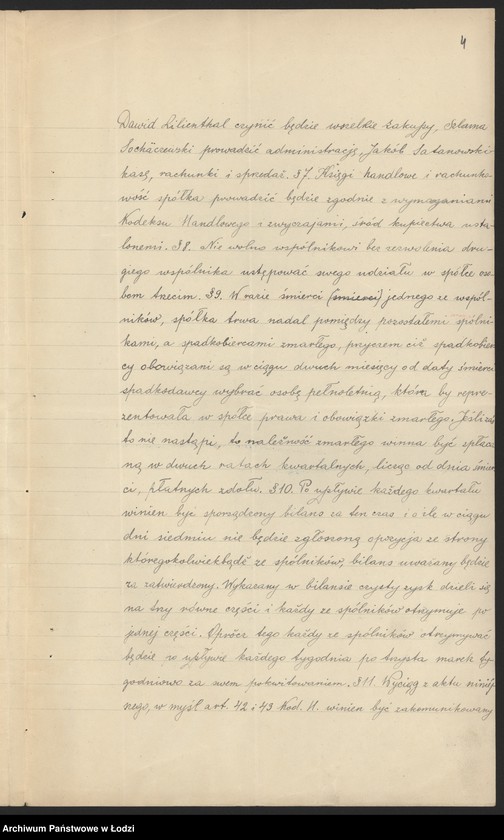 4
Dawid Lilienthal czynić będzie wszelkie zakupy, Szlama
Sochaczewski prowadzić administrację, Jakób Satanowski-
kasę, rachunki i sprzedaż. §7. Księgi handlowe i rachunko
wość spółka prowadzić będzie zgodnie z wymaganiami
Kodeksu Handlowego i zwyczajami, śród kupiectwa usta-
lonemi. §8. Nie wolno wspólnikowi bez zezwolenia dru-
giego wspólnika ustępować swego udziału w spółce oso
bom trzecim. §9. W razie śmierci (śmierci) jednego ze wspól-
ników, spółka trwa nadal pomiędzy pozostałemi spólni-
kami, a spadkobiercami zmarłego, przyczem ciż spadkobier
cy obowiązani są w ciągu dwuch miesięcy od daty śmierci
spadkodawcy wybrać osobę pełnoletnią, która by repre-
zentowała w spółce prawa i obowiązki zmarłego. Jeśli zaś
to nie nastąpi, to należność zmarłego winna być spłaco
ną w dwuch ratach kwartalnych, licząc od dnia śmier
ci, płatnych zdołu. §10. Po upływie każdego kwartału
winien być sporządzony bilans za ten czas i o ile w ciągu
dni siedmiu nie będzie zgłoszoną opozycja ze strony
któregokolwiekbądź ze spólników, bilans uważany będzie
za zatwierdzony. Wykazany w bilansie czysty zysk dzieli się
na trzy równe części i każdy ze spólników otrzymuje po
jednej części. Oprócz tego każdy ze spólników otrzymywać
będzie po upływie każdego tygodnia po trzysta marek ty-
godniowo za swem pokwitowaniem. §11. Wyciąg z aktu niniej
nego, w myśl art. 42 i 43 Kod. H. winien być zakomunikowany
Archiwum Państwowe w Łodzi